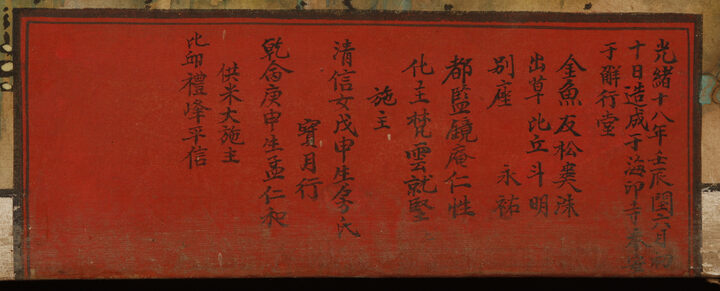 光緒十八年壬辰閏六月初
十日造成于海印寺奉安
于解行堂
金魚友松爽洙
出草比丘斗明
別座 永祐
都監鏡庵仁性
化主梵雲就堅
施主
清信女戊申生李氏
寶月行
乾命庚申生孟仁和
供米大施主
比丘禮峰平信